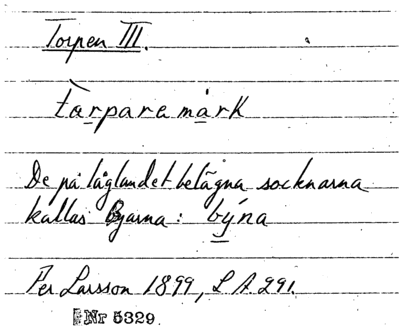 Torpen III.
tarpare märk
De på låglandet belägna socknarna
kallas Byarna: býna
Per Larsson 1899, L A 291.
Nr 5329